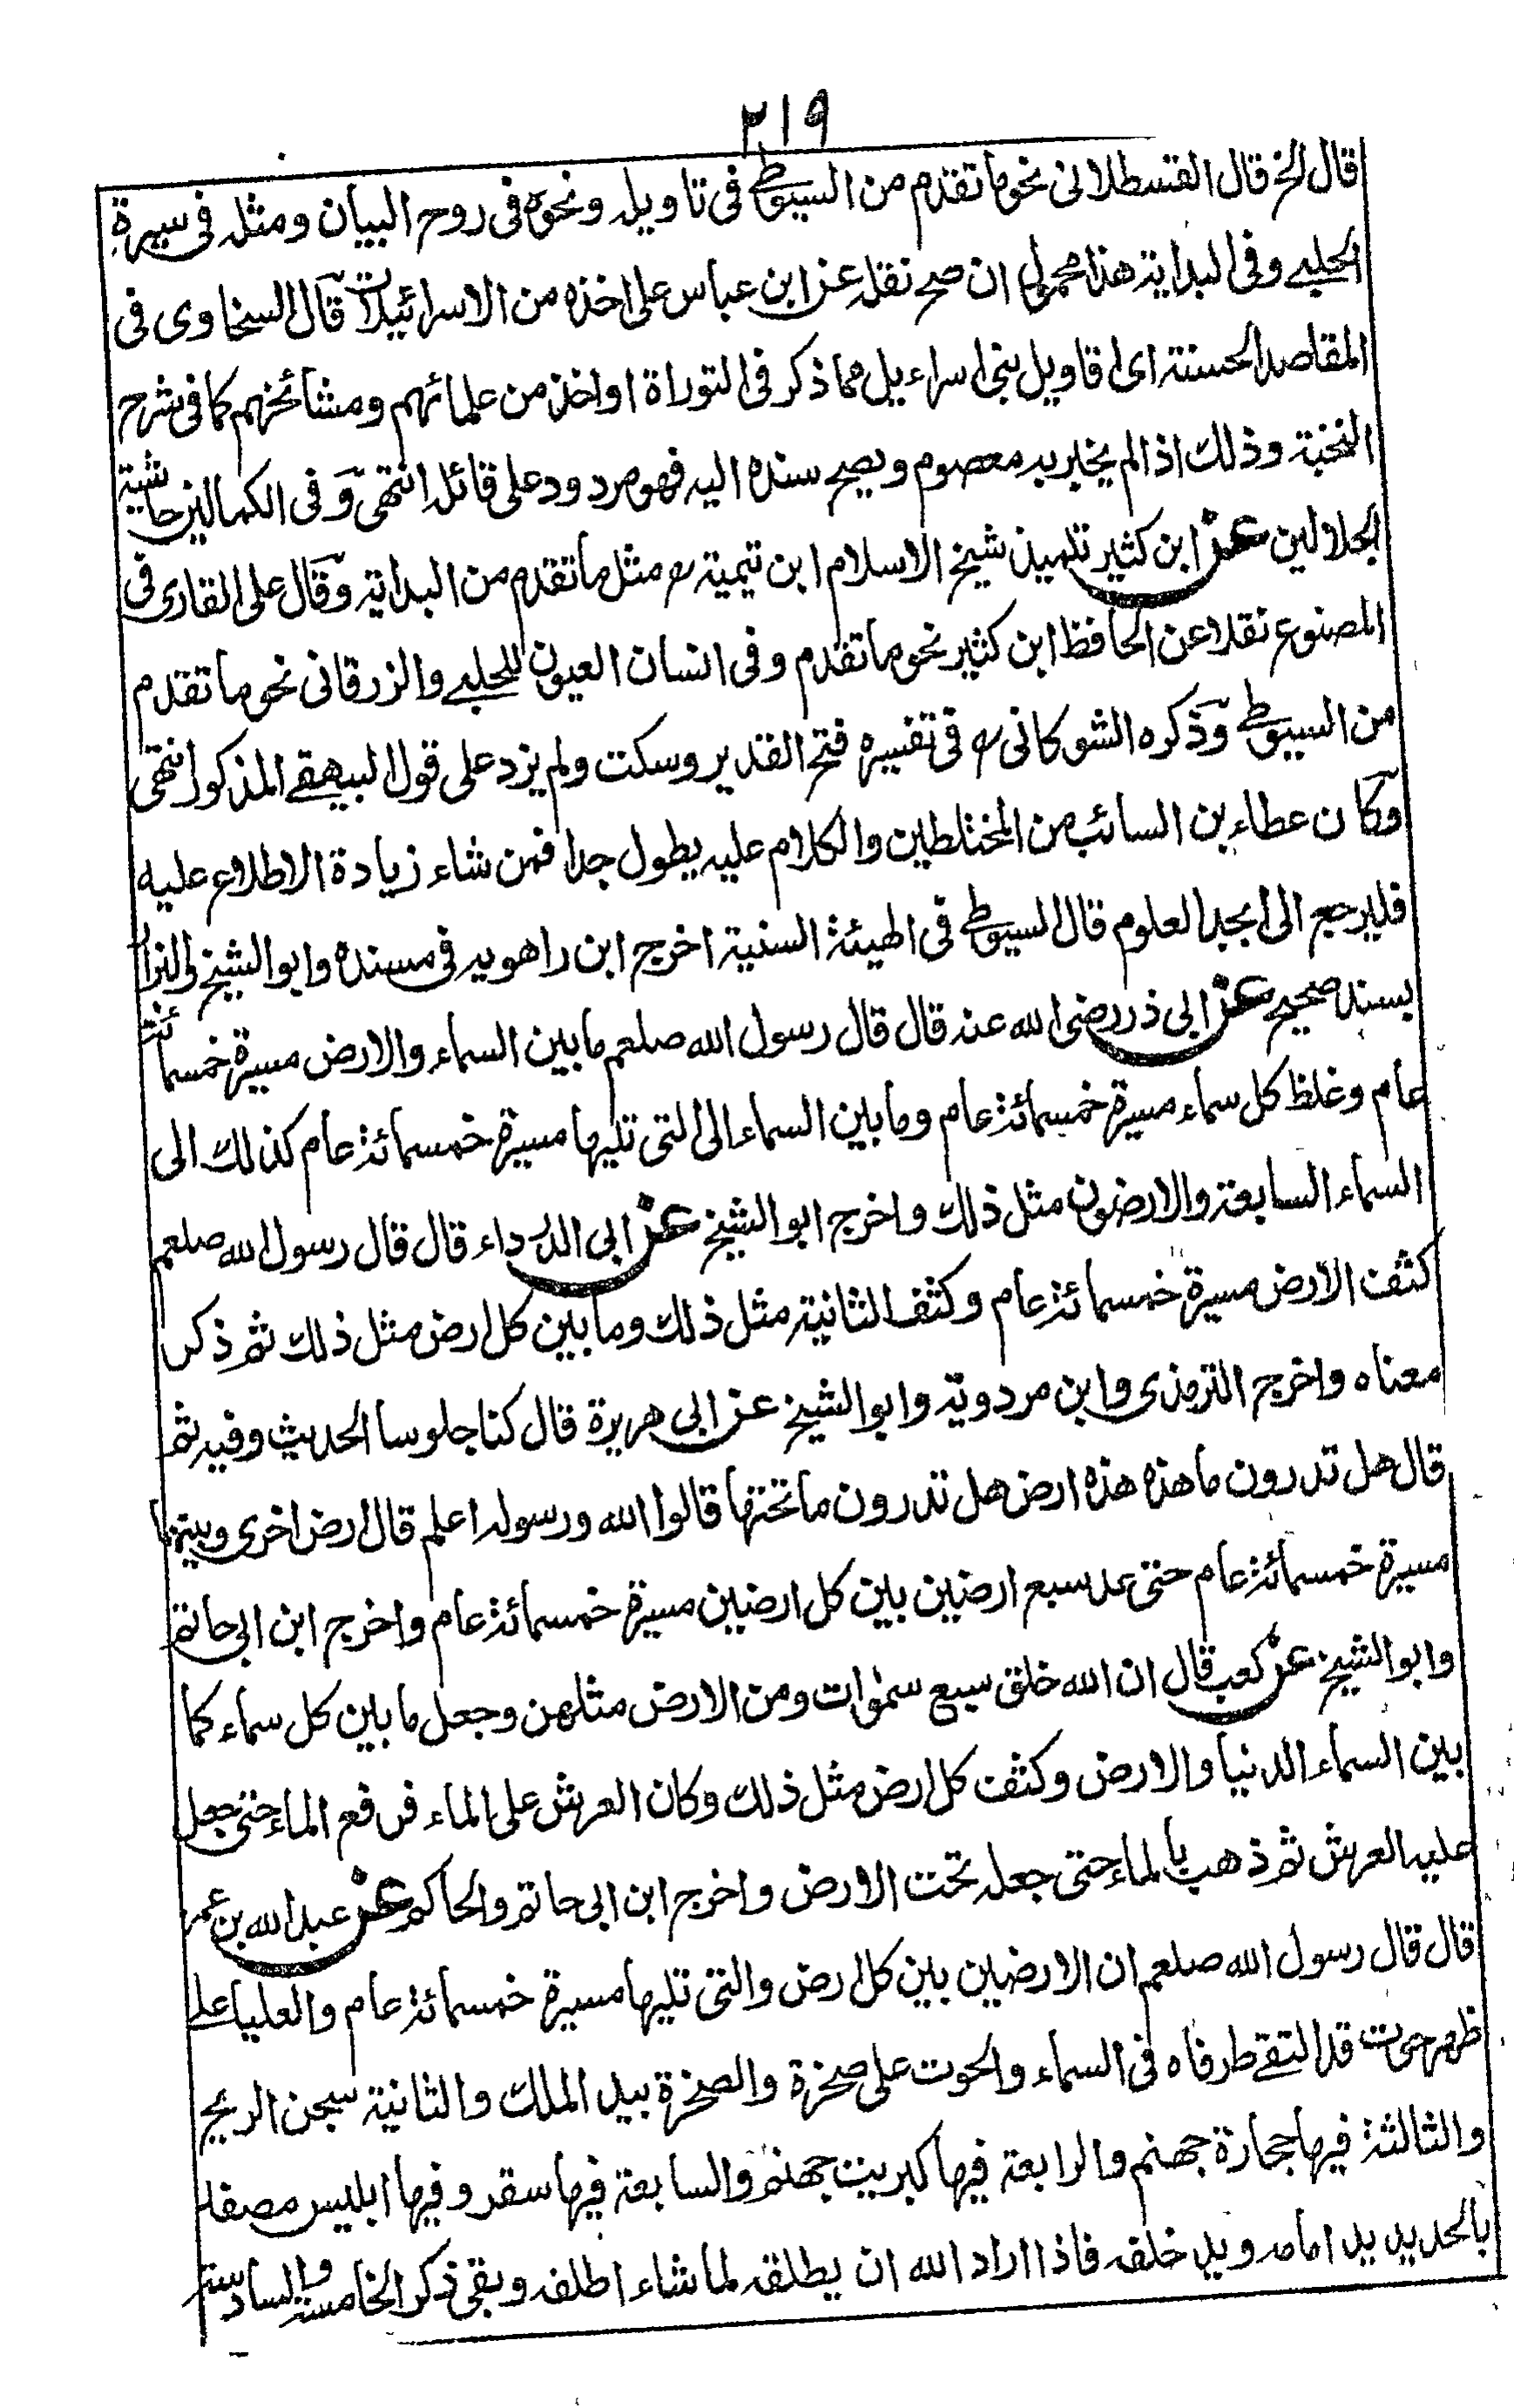 ٢١٩
قال الخ قال القسطلانی نحو ما تقدم من السیوطی فی تاویله ونحوه فی روح البیان ومثله فی سیرة
الحلبی وفی البدایة هذا محمول ان صح نقله عن ابن عباس علی اخذه من الاسرائیلات قال السخاوی فی
المقاصد الحسنة ای اقاویل بنی اسراءیل مما ذکر فی التوراة او اخذ من علمائهم ومشائخهم کما فی شرح
النخبة وذلك اذا لم یخبر به معصوم ویصح سنده الیه فهو مردود علی قائله انتهی وفی الکمالین حاشیة
الجلالین عن ابن کثیر تلمیذ شیخ الاسلام ابن تیمیة رح مثل ما تقدم من البدایة وقال علی القاری فی
المصنوع نقلا عن الحافظ ابن کثیر نحو ما تقدم وفی انسان العیون للحلبی والزرقانی نحو ما تقدم
من السیوطی وذکره الشوکانی رح فی تفسیره فتح القدیر وسکت ولم یزد علی قول البیهقی المذکور انتهی
وکان عطاء بن السائب من المختلطین والکلام علیه یطول جدا فمن شاء زیادة الاطلاع علیه
فلیرجع الی ابجد العلوم قال السیوطی فی الهیئة السنیة اخرج ابن راهویه فی مسنده وابو الشیخ والبزار
بسند صحیح عن ابی ذر رضی الله عنه قال قال رسول الله صلعم ما بین السماء والارض مسیرة خمسمائة
عام وغلظ کل سماء مسیرة خمسمائة عام وما بین السماء الی التی تلیها مسیرة خمسمائة عام کذلك الی
السماء السابعة والارضون مثل ذلك واخرج ابو الشیخ عن ابی الدرداء قال قال رسول الله صلعم
کثف الارض مسیرة خمسمائة عام وکثف الثانیة مثل ذلك وما بین کل ارض مثل ذلك ثم ذکر
معناه واخرج الترمذی وابن مردویة وابو الشیخ عن ابی هریرة قال کنا جلوسا الحدیث وفیه ثم
قال هل تدرون ما هذه هذه ارض هل تدرون ما تحتها قالوا الله ورسوله اعلم قال ارض اخری وبینهما
مسیرة خمسمائة عام حتی عد سبع ارضین بین کل ارضین مسیرة خمسمائة عام واخرج ابن ابی حاتم
وابو الشیخ عن کعب قال ان الله خلق سبع سموات ومن الارض مثلهن وجعل ما بین کل سماء کما
بین السماء الدنیا والارض وکثف کل ارض مثل ذلك وکان العرش علی الماء فرفع الماء حتی جعل
علیه العرش ثم ذهب بالماء حتی جعله تحت الارض واخرج ابن ابی حاتم والحاکم عن عبد الله بن عمر
قال قال رسول الله صلعم ان الارضین بین کل ارض والتی تلیها مسیرة خمسمائة عام والعلیا علی
ظهر حوت قد التقی طرفاه فی السماء والحوت علی صخرة والصخرة بید الملك والثانیة سجن الریح
والثالثة فیها حجارة جهنم والرابعة فیها کبریت جهنم والسابعة فیها سقر وفیها ابلیس مصفد
بالحدید ید امامه وید خلفه فاذا اراد الله ان یطلقه لما شاء اطلقه وبقی ذکر الخامسة والسادسة